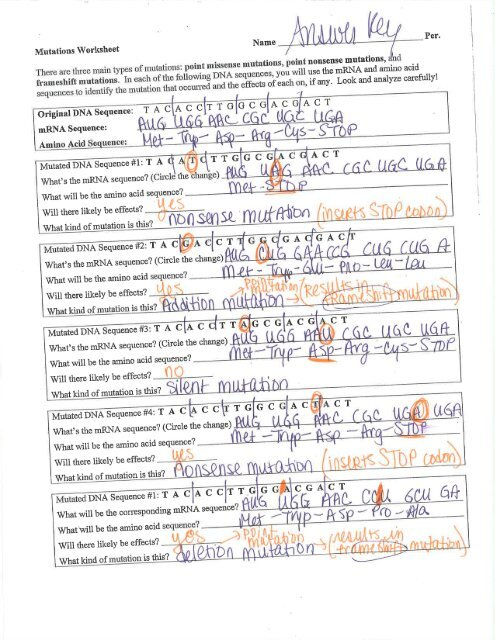 Name Answer Key Per.
Mutations Worksheet
There are three main types of mutations: point missense mutations, point nonsense mutations, and
frameshift mutations. In each of the following DNA sequences, you will use the mRNA and amino acid
sequences to identify the mutation that occurred and the effects of each on, if any. Look and analyze carefully!
Original DNA Sequence: T A C A C C T T G G C G A C G A C T
mRNA Sequence: AUG UGG AAC CGC UGC UGA
Amino Acid Sequence: Met - Tryp - Asp - Arg - Cys - STOP
Mutated DNA Sequence #1: T A C A T C T T G G C G A C G A C T
What's the mRNA sequence? (Circle the change) AUG UAG AAC CGC UGC UGA
What will be the amino acid sequence? Met - STOP
Will there likely be effects? yes
What kind of mutation is this? nonsense mutation (inserts STOP codon)
Mutated DNA Sequence #2: T A C G A C C T T G G C G A C G A C T
What's the mRNA sequence? (Circle the change) AUG CUG GAA CCG CUG CUG A
What will be the amino acid sequence? Met - Tryp - Glu - Pro - Leu - Leu
Will there likely be effects? yes
What kind of mutation is this? Addition mutation → (results in frameshift mutation)
Mutated DNA Sequence #3: T A C A C C T T A G C G A C G A C T
What's the mRNA sequence? (Circle the change) AUG UGG AAU CGC UGC UGA
What will be the amino acid sequence? Met - Tryp - Asp - Arg - Cys - STOP
Will there likely be effects? no
What kind of mutation is this? Silent mutation
Mutated DNA Sequence #4: T A C A C C T T G G C G A C T A C T
What's the mRNA sequence? (Circle the change) AUG UGG AAC CGC UGA UGA
What will be the amino acid sequence? Met - Tryp - Asp - Arg - STOP
Will there likely be effects? yes
What kind of mutation is this? Nonsense mutation (inserts STOP codon)
Mutated DNA Sequence #1: T A C A C C T T G G G A C G A C T
What will be the corresponding mRNA sequence? AUG UGG AAC CCU GCU GA
What will be the amino acid sequence? Met - Tryp - Asp - Pro - Ala
Will there likely be effects? yes → point mutation
What kind of mutation is this? deletion mutation → (results in frameshift mutation)